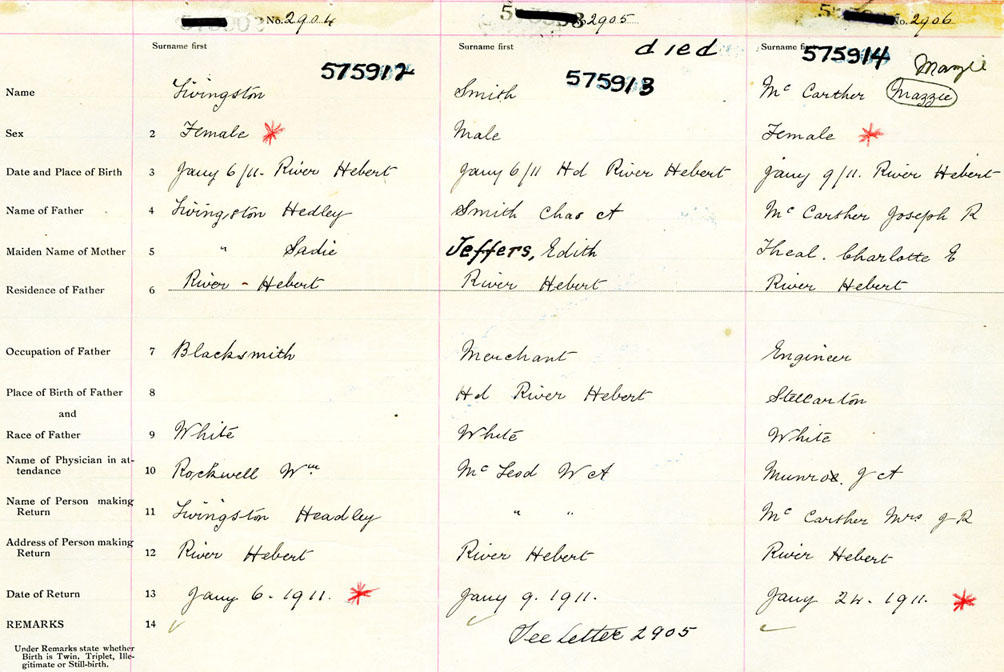 No. 2904 2905 No. 2906
Surname first Surname first died Surname first
575912 575913 575914 Margie
Name Livingston Smith Mc Carther Mazzie
Sex 2 Female Male Female
Date and Place of Birth 3 Jany 6/11. River Hebert Jany 6/11 Hd River Hebert Jany 9/11. River Hebert
Name of Father 4 Livingston Hedley Smith Chas A Mc Carther Joseph R
Maiden Name of Mother 5 " Sadie Jeffers, Edith Theal. Charlotte E
Residence of Father 6 River - Hebert River Hebert River Hebert
Occupation of Father 7 Blacksmith Merchant Engineer
Place of Birth of Father 8 Hd River Hebert Stellarton
and
Race of Father 9 White White White
Name of Physician in at-
tendance 10 Rockwell Wm Mc Leod W A Munroe. J A
Name of Person making
Return 11 Livingston Headley " " Mc Carther Mrs J R
Address of Person making
Return 12 River Hebert River Hebert River Hebert
Date of Return 13 Jany 6 - 1911. Jany 9. 1911. Jany 24 - 1911.
REMARKS 14 See Letter 2905
Under Remarks state whether
Birth is Twin, Triplet, Ille-
gitimate or Still-birth.